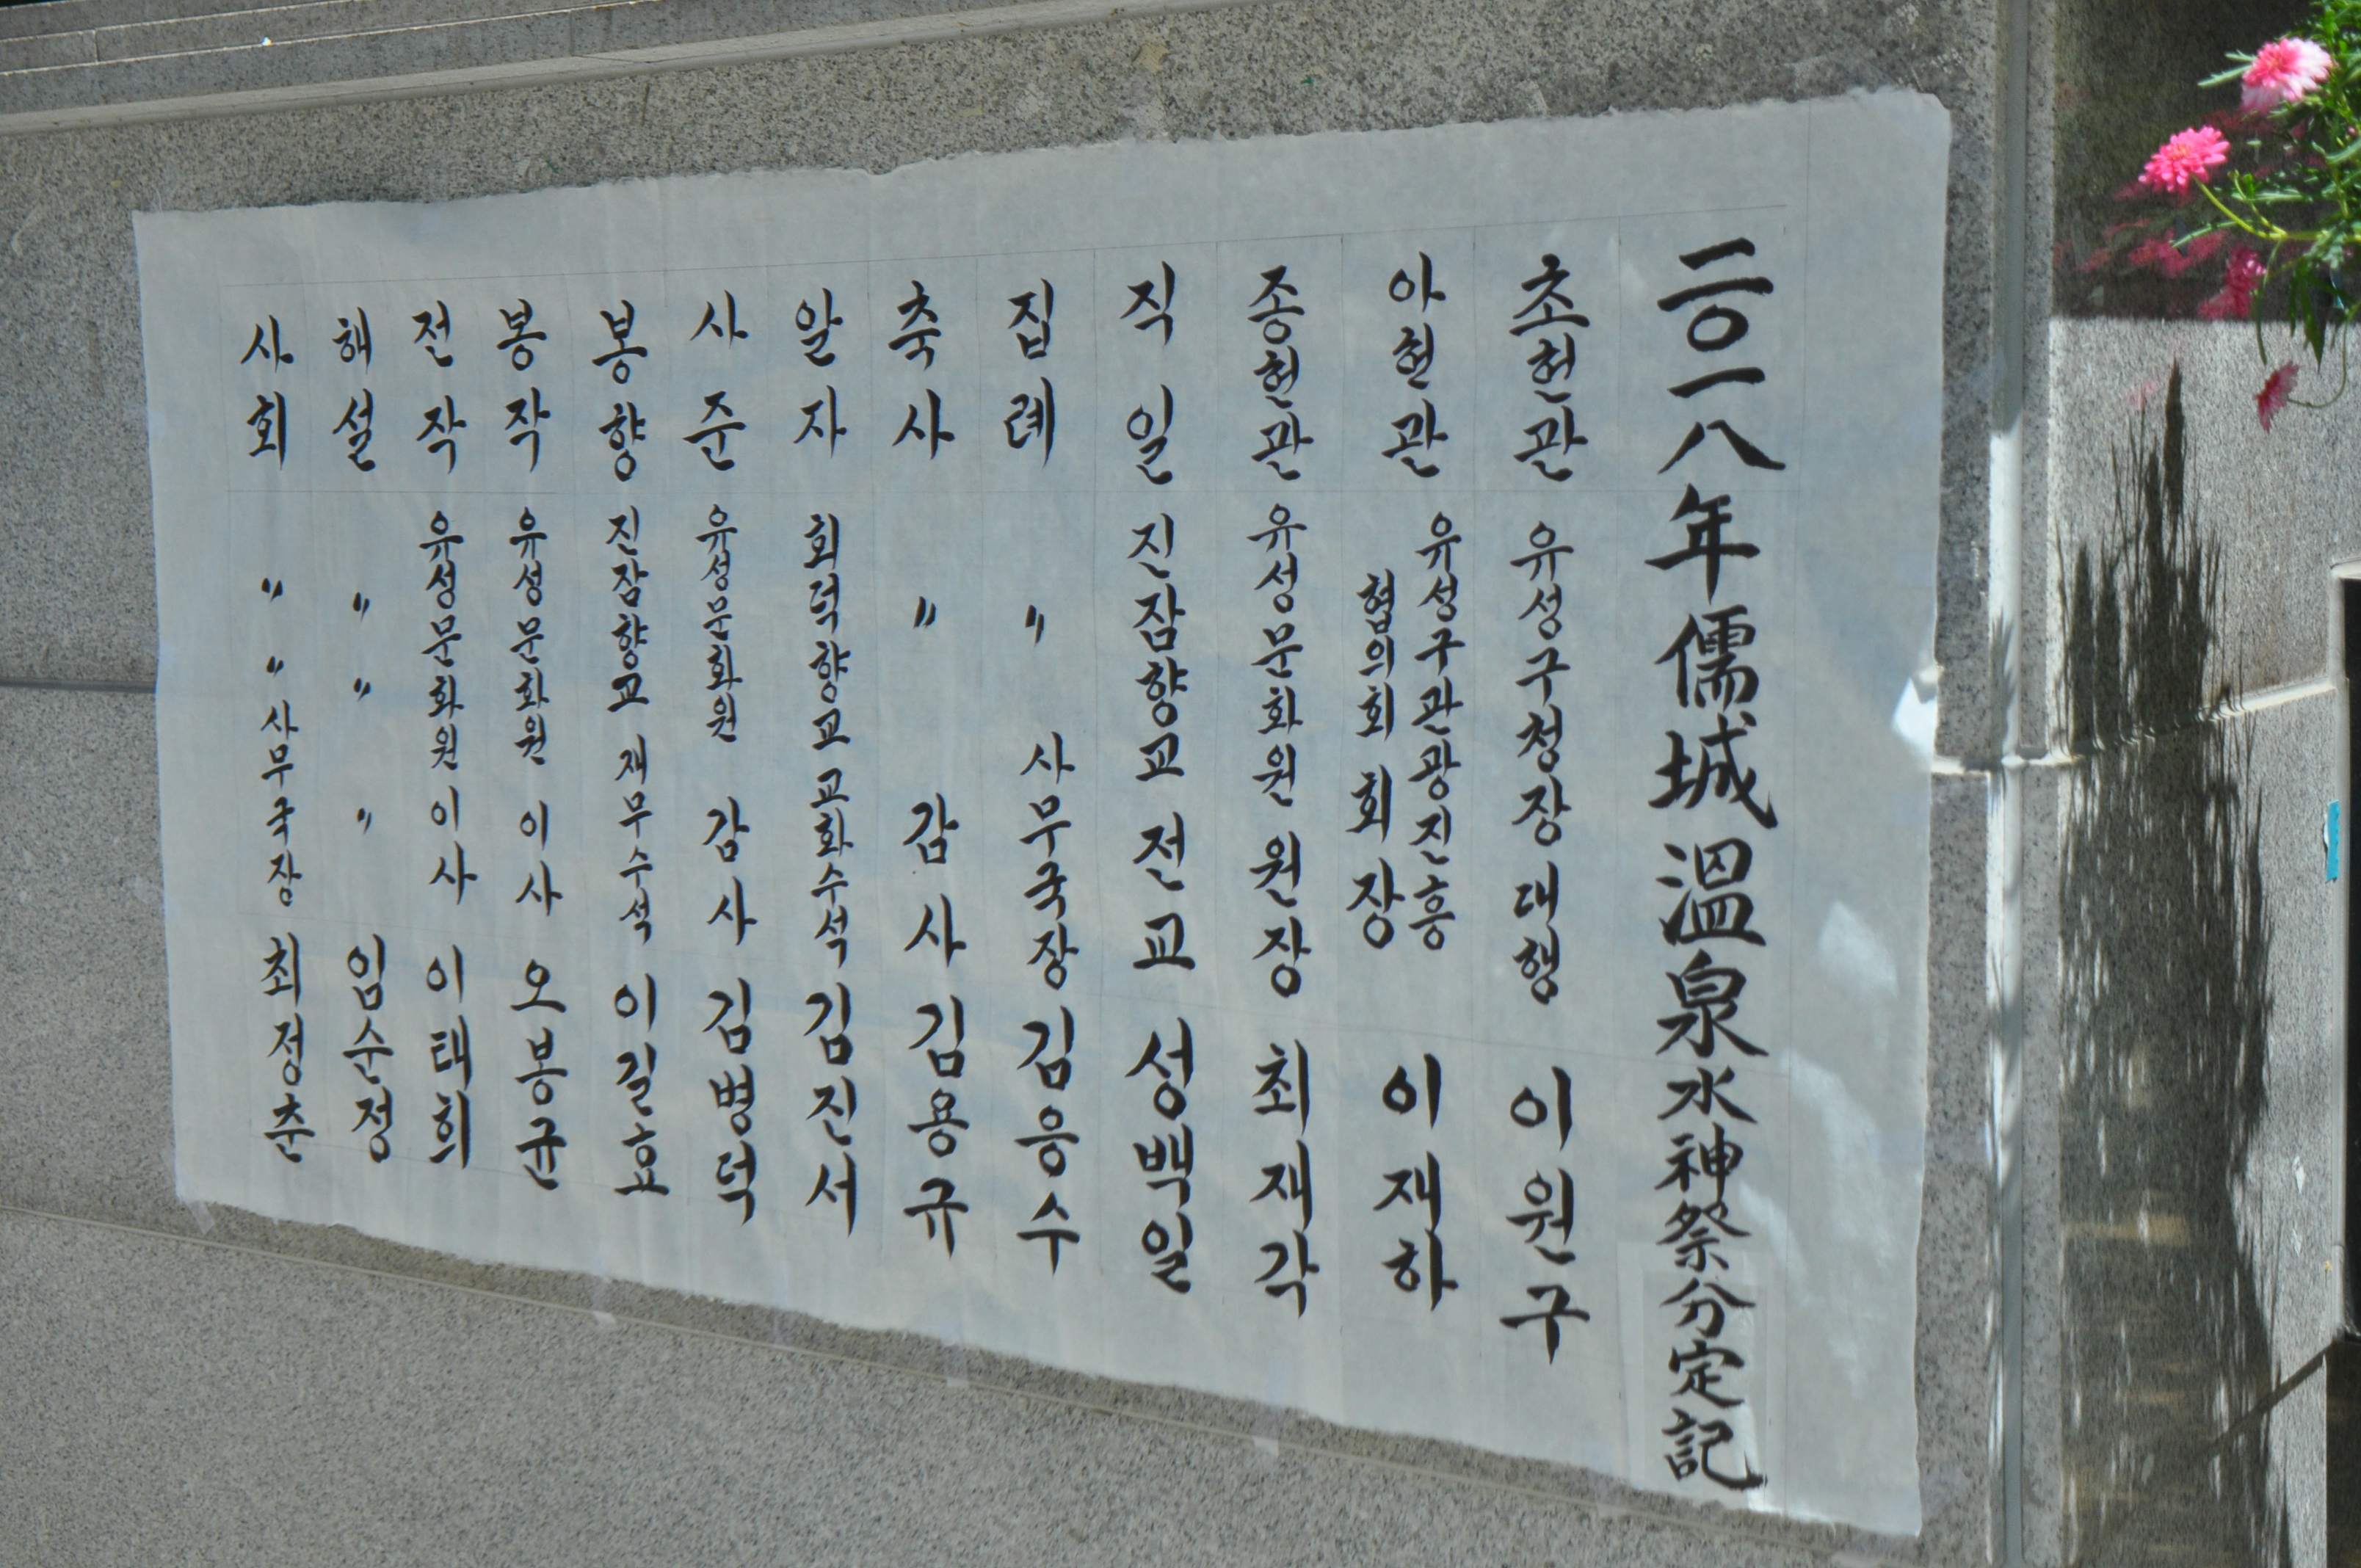 二〇一八年儒城溫泉水神祭分定記
초헌관 유성구청장 대행 이원구
아헌관 유성구관광진흥
협의회 회장 이재하
종헌관 유성문화원 원장 최재각
직일 진잠향교 전교 성백일
집례 〃 사무국장 김응수
축사 〃 감사 김용규
알자 회덕향교 교화수석 김진서
사준 유성문화원 감사 김병덕
봉향 진잠향교 재무수석 이길효
봉작 유성문화원 이사 오봉균
전작 유성문화원 이사 이택희
해설 〃 〃 〃 임수정
사회 〃 〃 사무국장 최정춘